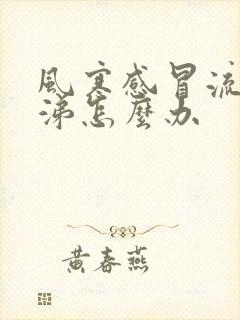 風寒感冒流
涕怎麼办
黄春燕